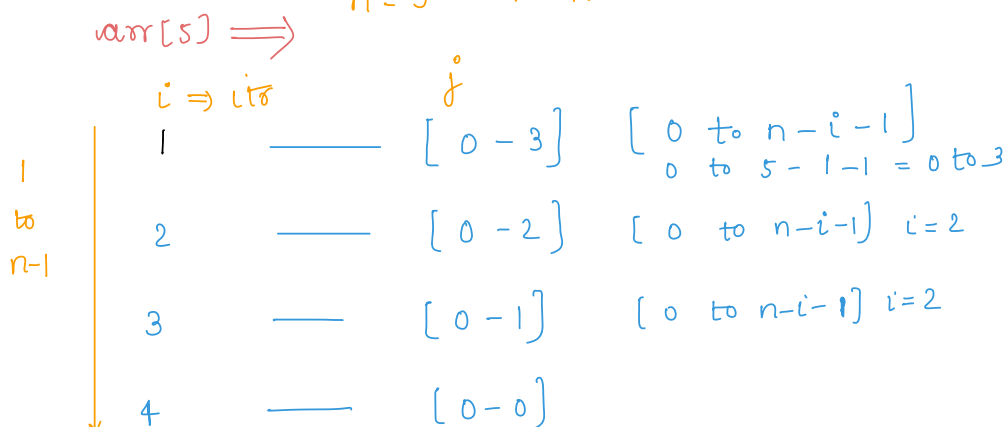 arr[5] ⟹
i ⇒ itr j
1 [0 - 3] [0 to n-i-1]
0 to 5 - 1 - 1 = 0 to 3
1
to
n-1
2 [0 - 2] [0 to n-i-1] i = 2
3 [0 - 1] [0 to n-i-1] i = 2
4 [0 - 0]